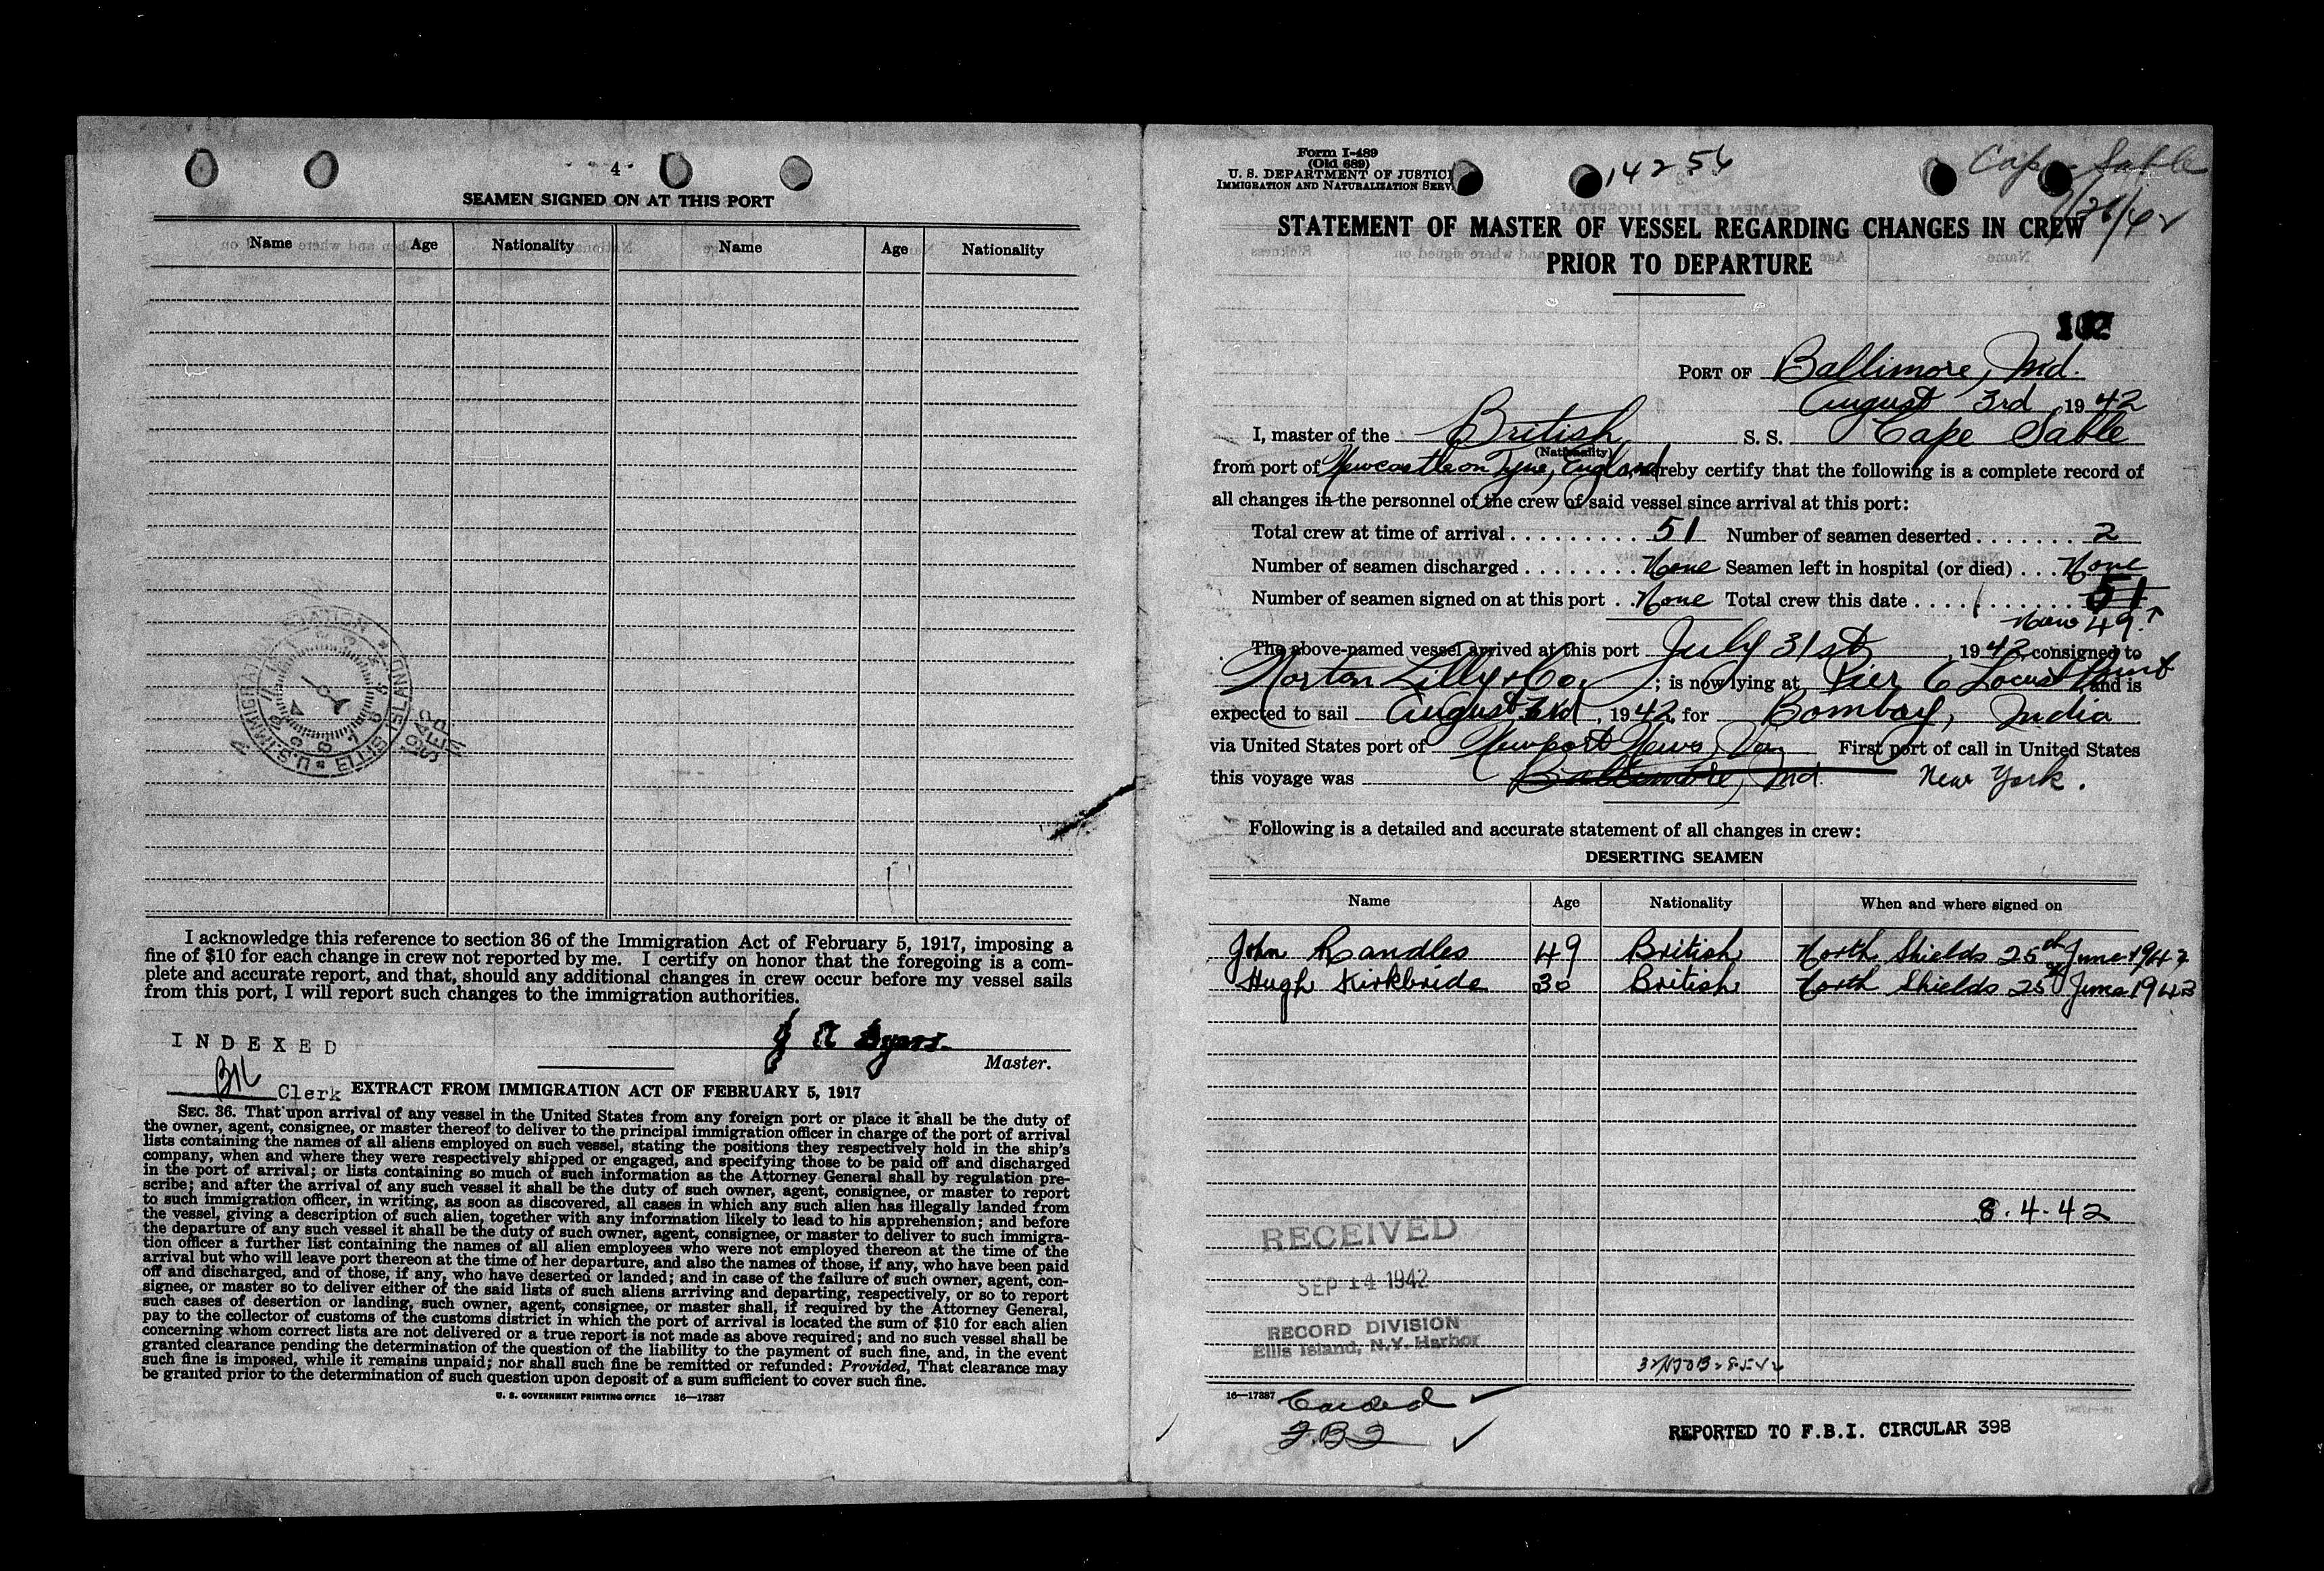 4
SEAMEN SIGNED ON AT THIS PORT
Name Age Nationality Name Age Nationality
U.S. IMMIGRATION STATION ELLIS ISLAND
I acknowledge this reference to section 36 of the Immigration Act of February 5, 1917, imposing a
fine of $10 for each change in crew not reported by me. I certify on honor that the foregoing is a com-
plete and accurate report, and that, should any additional changes in crew occur before my vessel sails
from this port, I will report such changes to the immigration authorities.
INDEXED
Byars
Master.
Clerk EXTRACT FROM IMMIGRATION ACT OF FEBRUARY 5, 1917
SEC. 36. That upon arrival of any vessel in the United States from any foreign port or place it shall be the duty of
the owner, agent, consignee, or master thereof to deliver to the principal immigration officer in charge of the port of arrival
lists containing the names of all aliens employed on such vessel, stating the positions they respectively hold in the ship's
company, when and where they were respectively shipped or engaged, and specifying those to be paid off and discharged
in the port of arrival; or lists containing so much of such information as the Attorney General shall by regulation pre-
scribe; and after the arrival of any such vessel it shall be the duty of such owner, agent, consignee, or master to report
to such immigration officer, in writing, as soon as discovered, all cases in which any such alien has illegally landed from
the vessel, giving a description of such alien, together with any information likely to lead to his apprehension; and before
the departure of any such vessel it shall be the duty of such owner, agent, consignee, or master to deliver to such immigra-
tion officer a further list containing the names of all alien employees who were not employed thereon at the time of the
arrival but who will leave port thereon at the time of her departure, and also the names of those, if any, who have been paid
off and discharged, and of those, if any, who have deserted or landed; and in case of the failure of such owner, agent, con-
signee, or master so to deliver either of the said lists of such aliens arriving and departing, respectively, or so to report
such cases of desertion or landing, such owner, agent, consignee, or master shall, if required by the Attorney General,
pay to the collector of customs of the customs district in which the port of arrival is located the sum of $10 for each alien
concerning whom correct lists are not delivered or a true report is not made as above required; and no such vessel shall be
granted clearance pending the determination of the question of the liability to the payment of such fine, and, in the event
such fine is imposed, while it remains unpaid; nor shall such fine be remitted or refunded: Provided, That clearance may
be granted prior to the determination of such question upon deposit of a sum sufficient to cover such fine.
U. S. GOVERNMENT PRINTING OFFICE 16—17387
Form I-489
(Old 689)
U. S. DEPARTMENT OF JUSTICE
IMMIGRATION AND NATURALIZATION SERV
14256
Cape Sable
STATEMENT OF MASTER OF VESSEL REGARDING CHANGES IN CREW
PRIOR TO DEPARTURE
PORT OF Baltimore, Md.
August 3rd, 1942
I, master of the British S. S. Cape Sable
(Nationality)
from port of Newcastle on Tyne, England, hereby certify that the following is a complete record of
all changes in the personnel of the crew of said vessel since arrival at this port:
Total crew at time of arrival 51 Number of seamen deserted 2
Number of seamen discharged None Seamen left in hospital (or died) None
Number of seamen signed on at this port None Total crew this date 51
Now 49
The above-named vessel arrived at this port July 31st, 1942, consigned to
Norton Lilly & Co.; is now lying at Pier 6 Locust Point and is
expected to sail August 3rd, 1942, for Bombay, India
via United States port of Newport News, Va. First port of call in United States
this voyage was Baltimore, Md. New York.
Following is a detailed and accurate statement of all changes in crew:
DESERTING SEAMEN
Name Age Nationality When and where signed on
John Randles 49 British North Shields 25th June 1942
Hugh Kirkbride 30 British North Shields 25th June 1942
8.4.42
RECEIVED
SEP 14 1942
RECORD DIVISION
Ellis Island, N.Y. Harbor
16—17387
Carded ✓
F.B.I ✓
REPORTED TO F.B.I. CIRCULAR 398